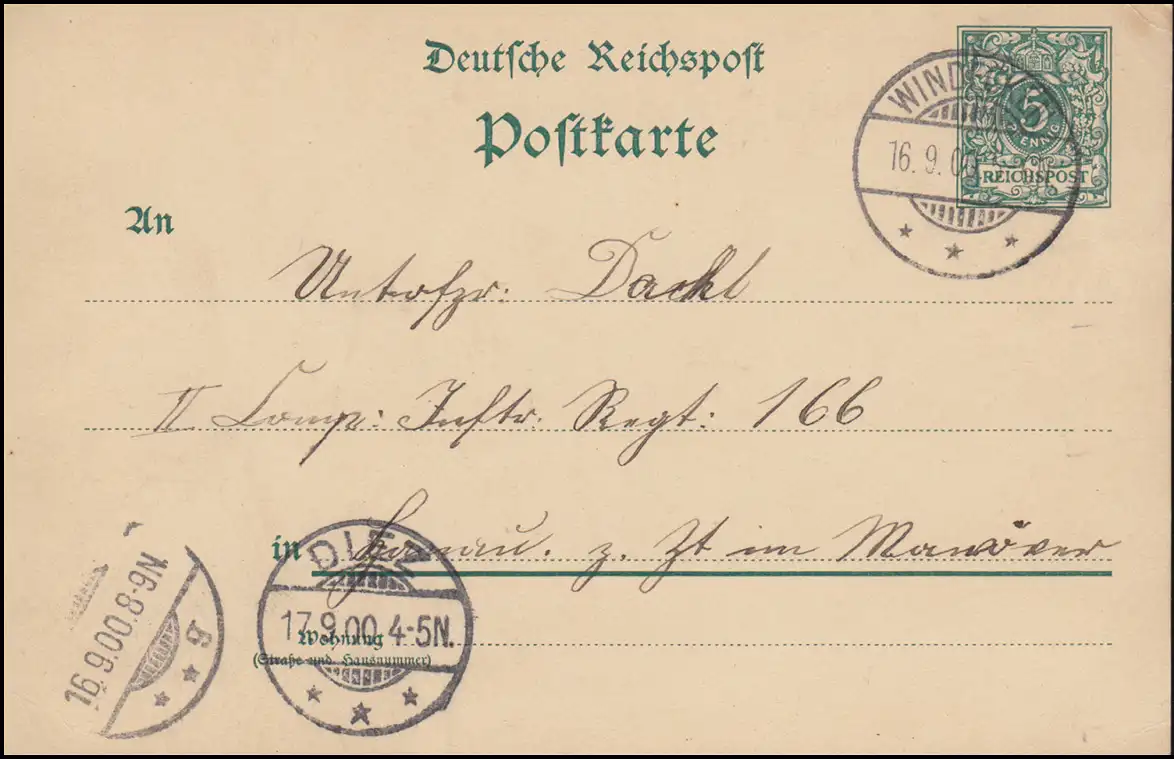 Deutsche Reichspost
Postkarte
5
PFENNIG
REICHSPOST
16. 9. 00
An
Untoffzr. Dackl
II Comp: Inftr. Regt: 166
in Hanau. z. Zt im Manöver
DIEZ
17.9.00.4-5N.
Wohnung
(Straße und Hausnummer)
16.9.00.8-9N.
g